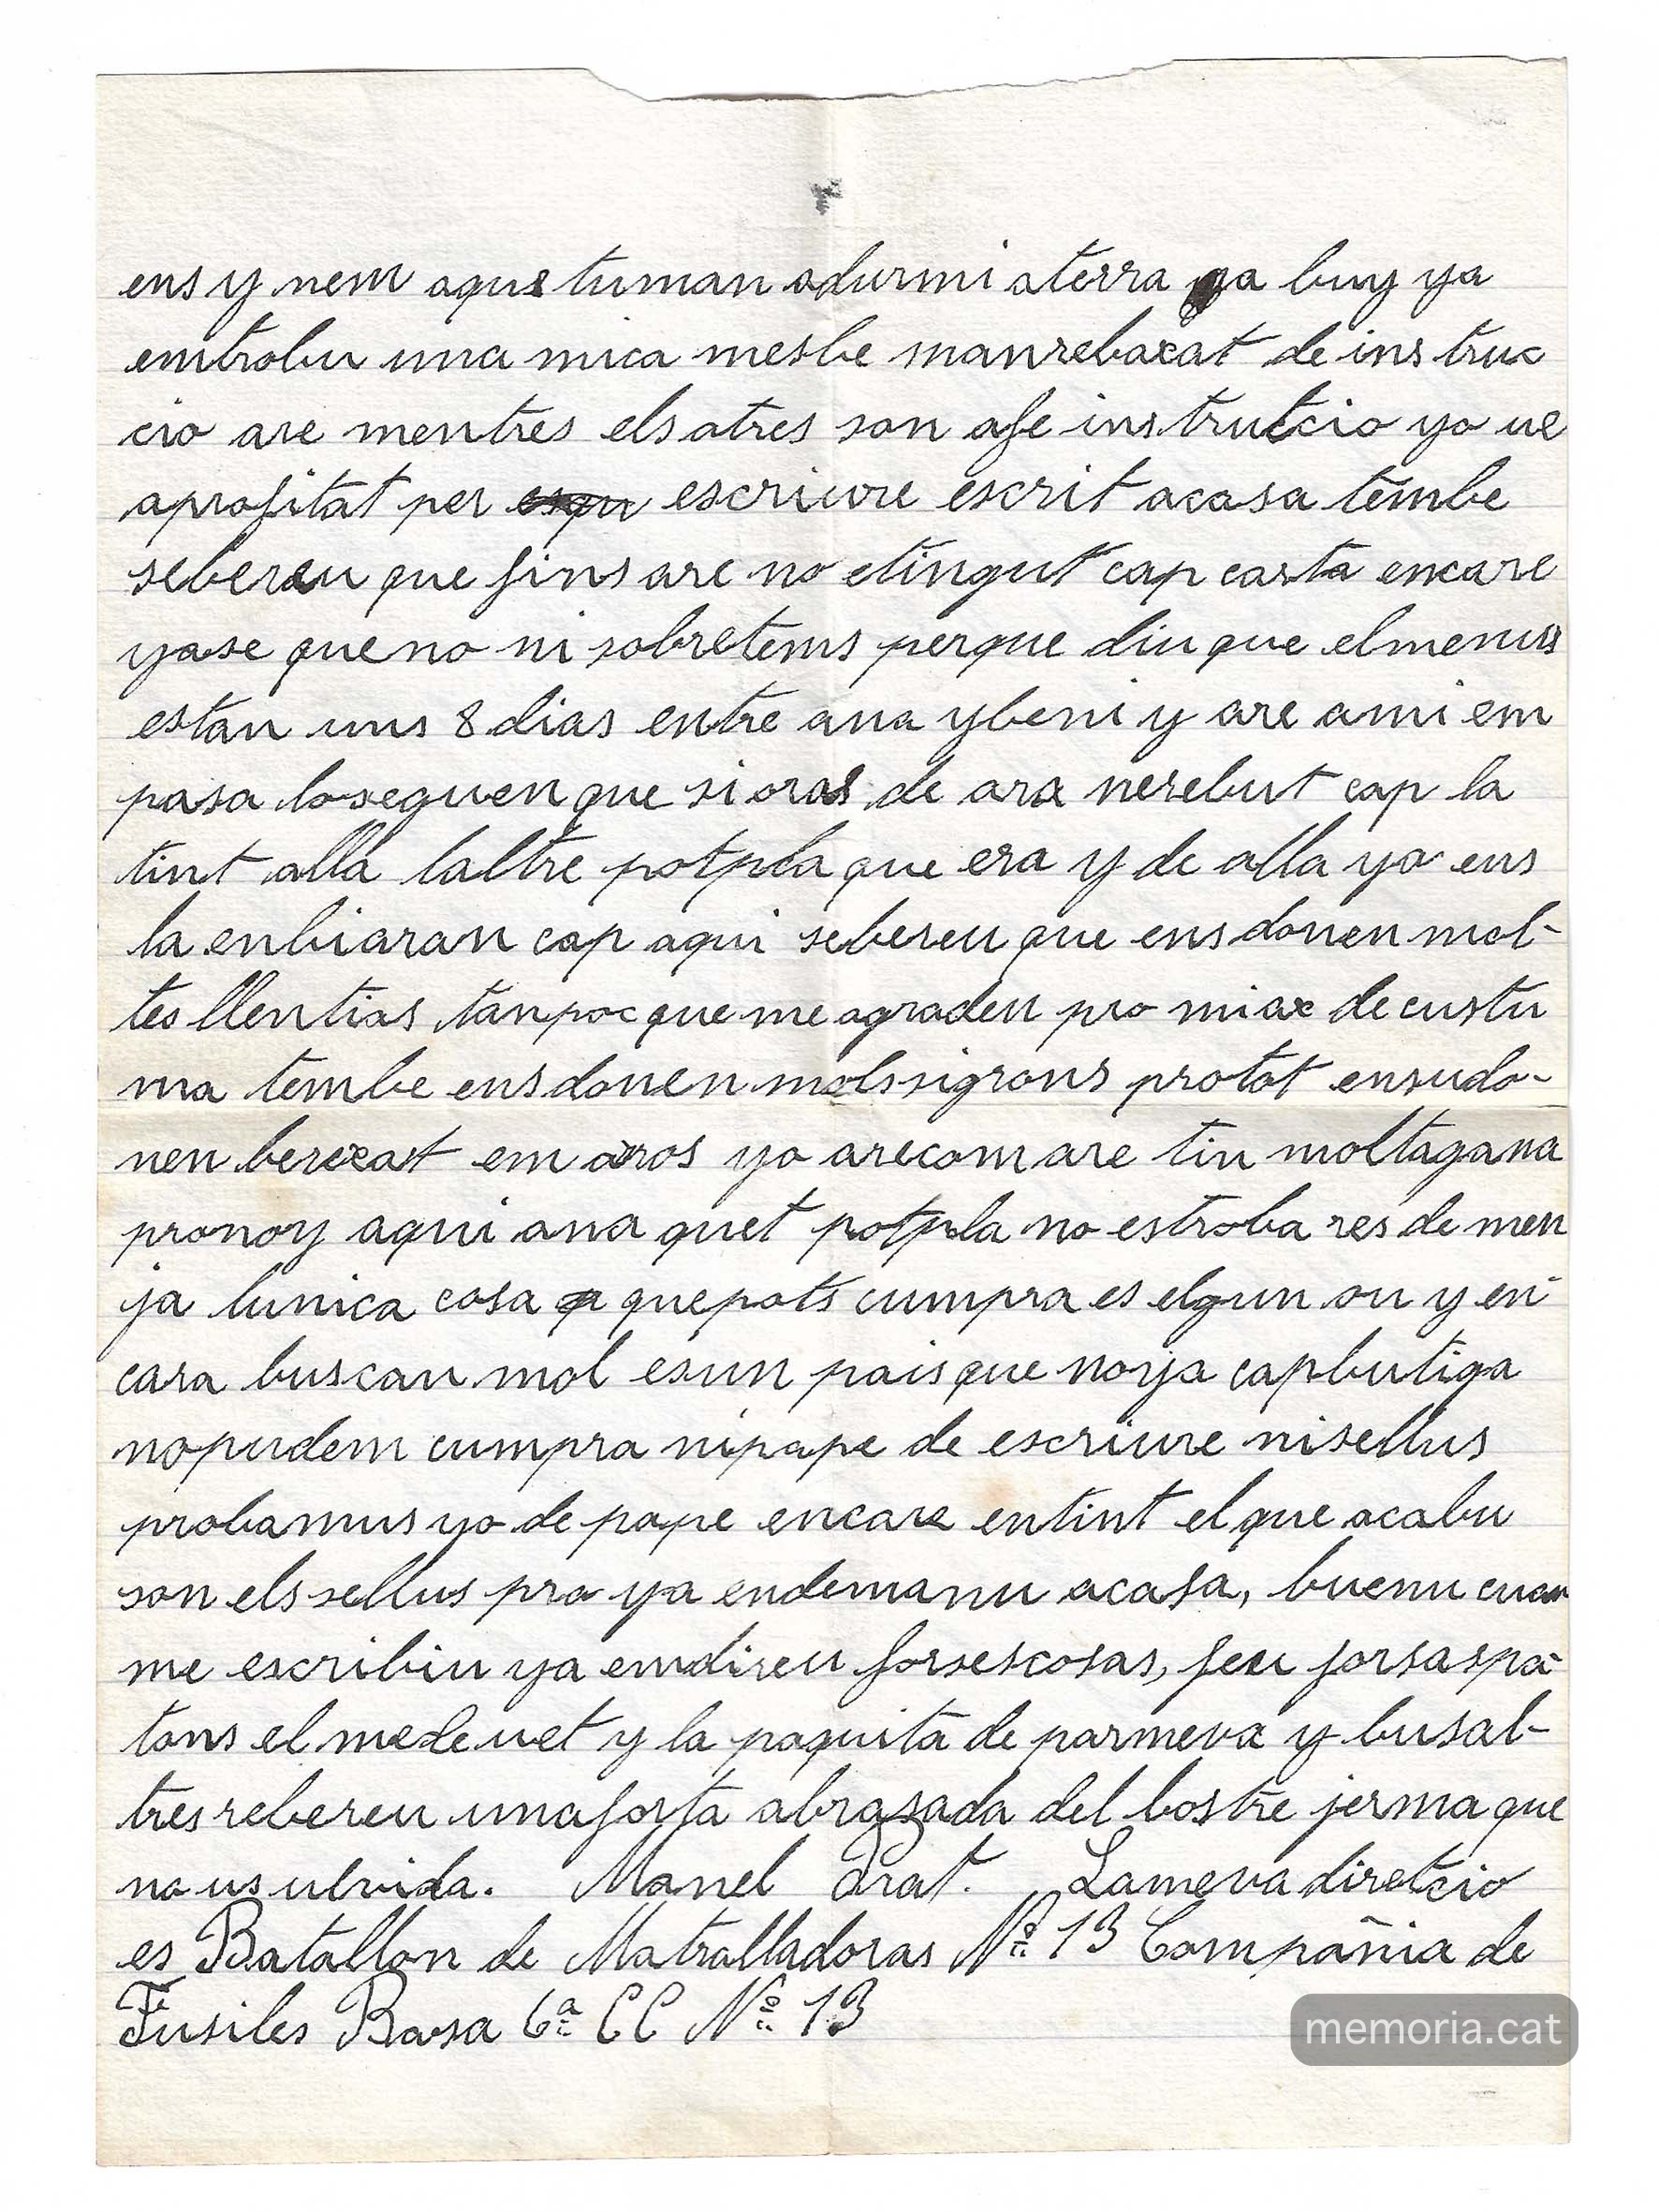 ens y nem aqustuman adurmi aterra ya buy ya
emtrobu una mica mesbe manrebaxat de instruc
cio are mentres elsatres son afe instrutcio yo ue
aprofitat per escriure escrit acasa tembe
sebereu que fins are no etingut cap carta encare
yase queno ni sobretems perque diu que elmenus
estan uns 8 dias entre ana ybeni y are ami em
pasa loseguen que sioras de ara nerebut cap la
tint alla laltre potpla que era y de alla ya ens
la enbiaran cap aqui sebereu que ensdonen mol-
tes llentias tanpoc que me agraden pro miax de custu
ma tembe ensdonen mols sigrons protot ensudo-
nen berexat em aros yo arecomare tin moltagana
pronoy aqui ana quet potpla no estroba res de men
ja lunica cosa quepots cumpra es elgun ou y en
cara buscan mol esun pais que noya capbutiga
nopudem cumpra nipape de escriure nisellus
probamus yo de pape encare entint el que acabu
son els sellus pro ya endemanu acasa, buenu cuan
me escribiu ya emdireu forsescosas, feu forsaspa-
tons el medeuet y la paquita de parmeva y busal-
tres rebereu unaforta abrasada del bostre jerma que
no us ulvida. Manel Prat. Lameva diretcio
es Batallon de Matralladoras Nº 13 Compañia de
Fusiles Basa 6ª CC Nº 13
memoria.cat